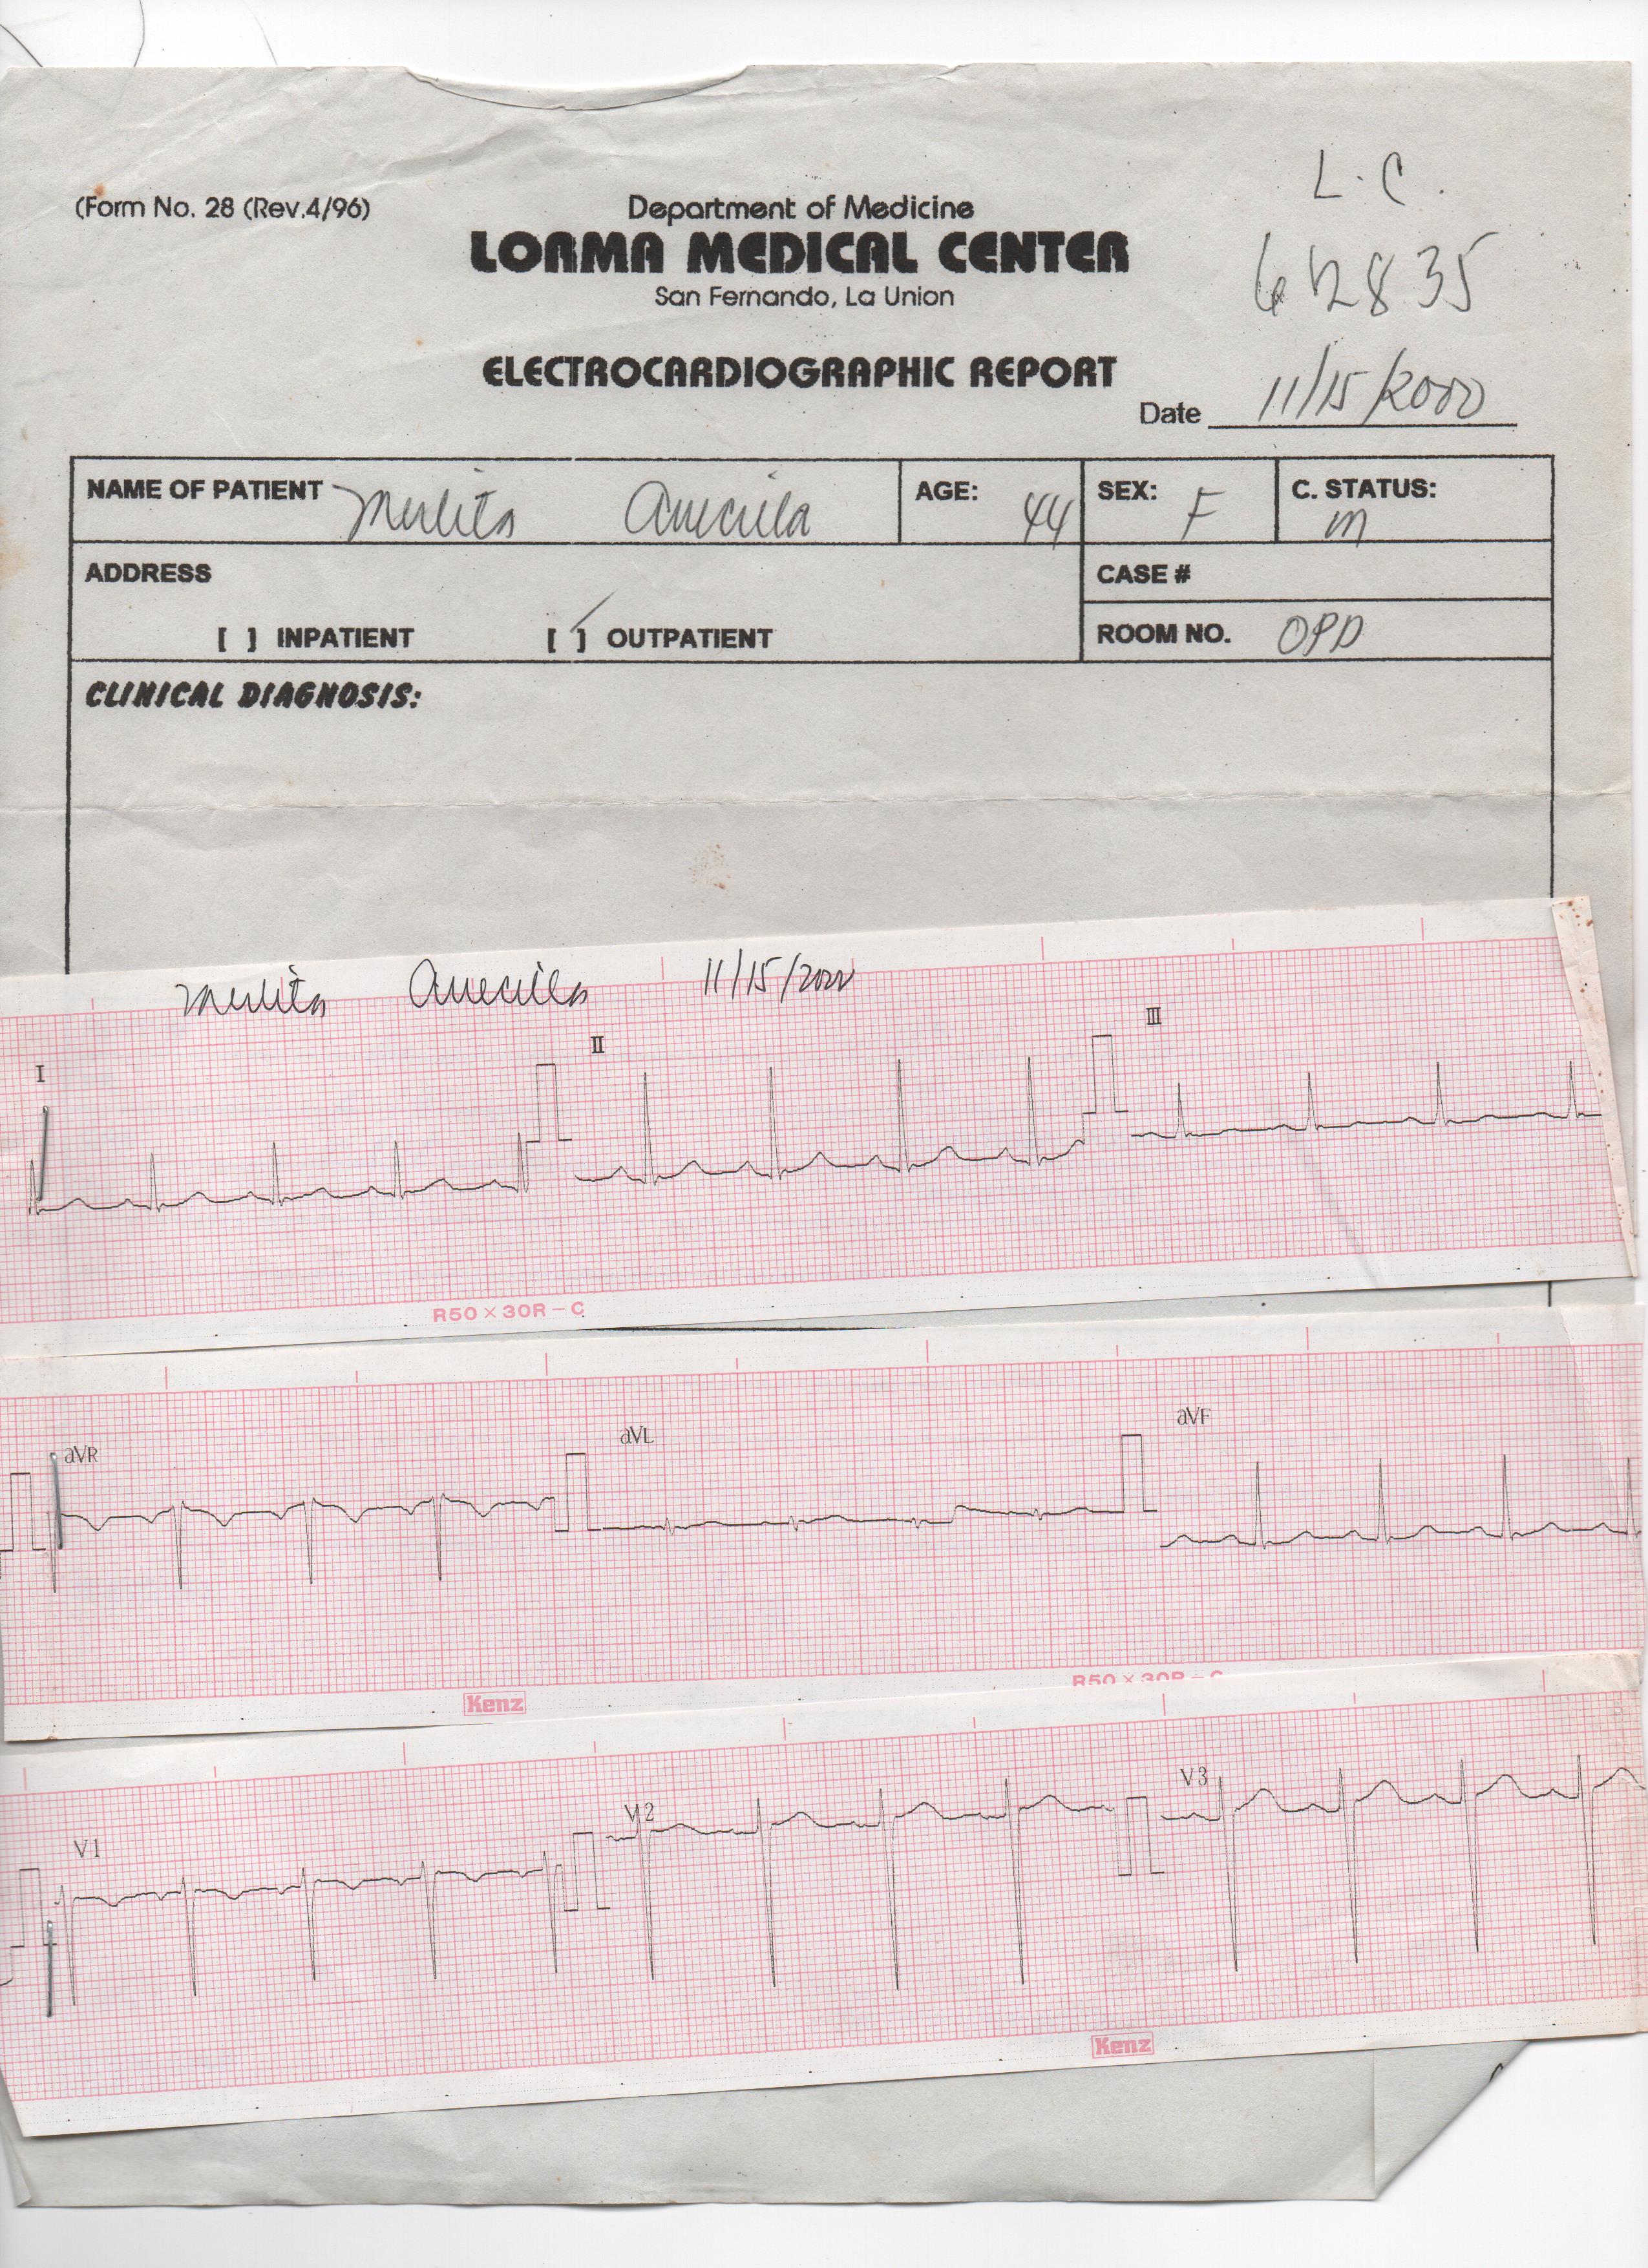 L.C.
(Form No. 28 (Rev.4/96)
Department of Medicine
LORMA MEDICAL CENTER
San Fernando, La Union
ELECTROCARDIOGRAPHIC REPORT
Date 11/15/2000
NAME OF PATIENT Merlita
AGE: 44
SEX: F
C. STATUS: m
ADDRESS
CASE #
[ ] INPATIENT [ ] OUTPATIENT
ROOM NO. OPD
CLINICAL DIAGNOSIS:
Merlita 11/15/2000
I
II
III
R50×30R-C
aVR
aVL
aVF
R50×30R-C
Kenz
V1
V2
V3
Kenz